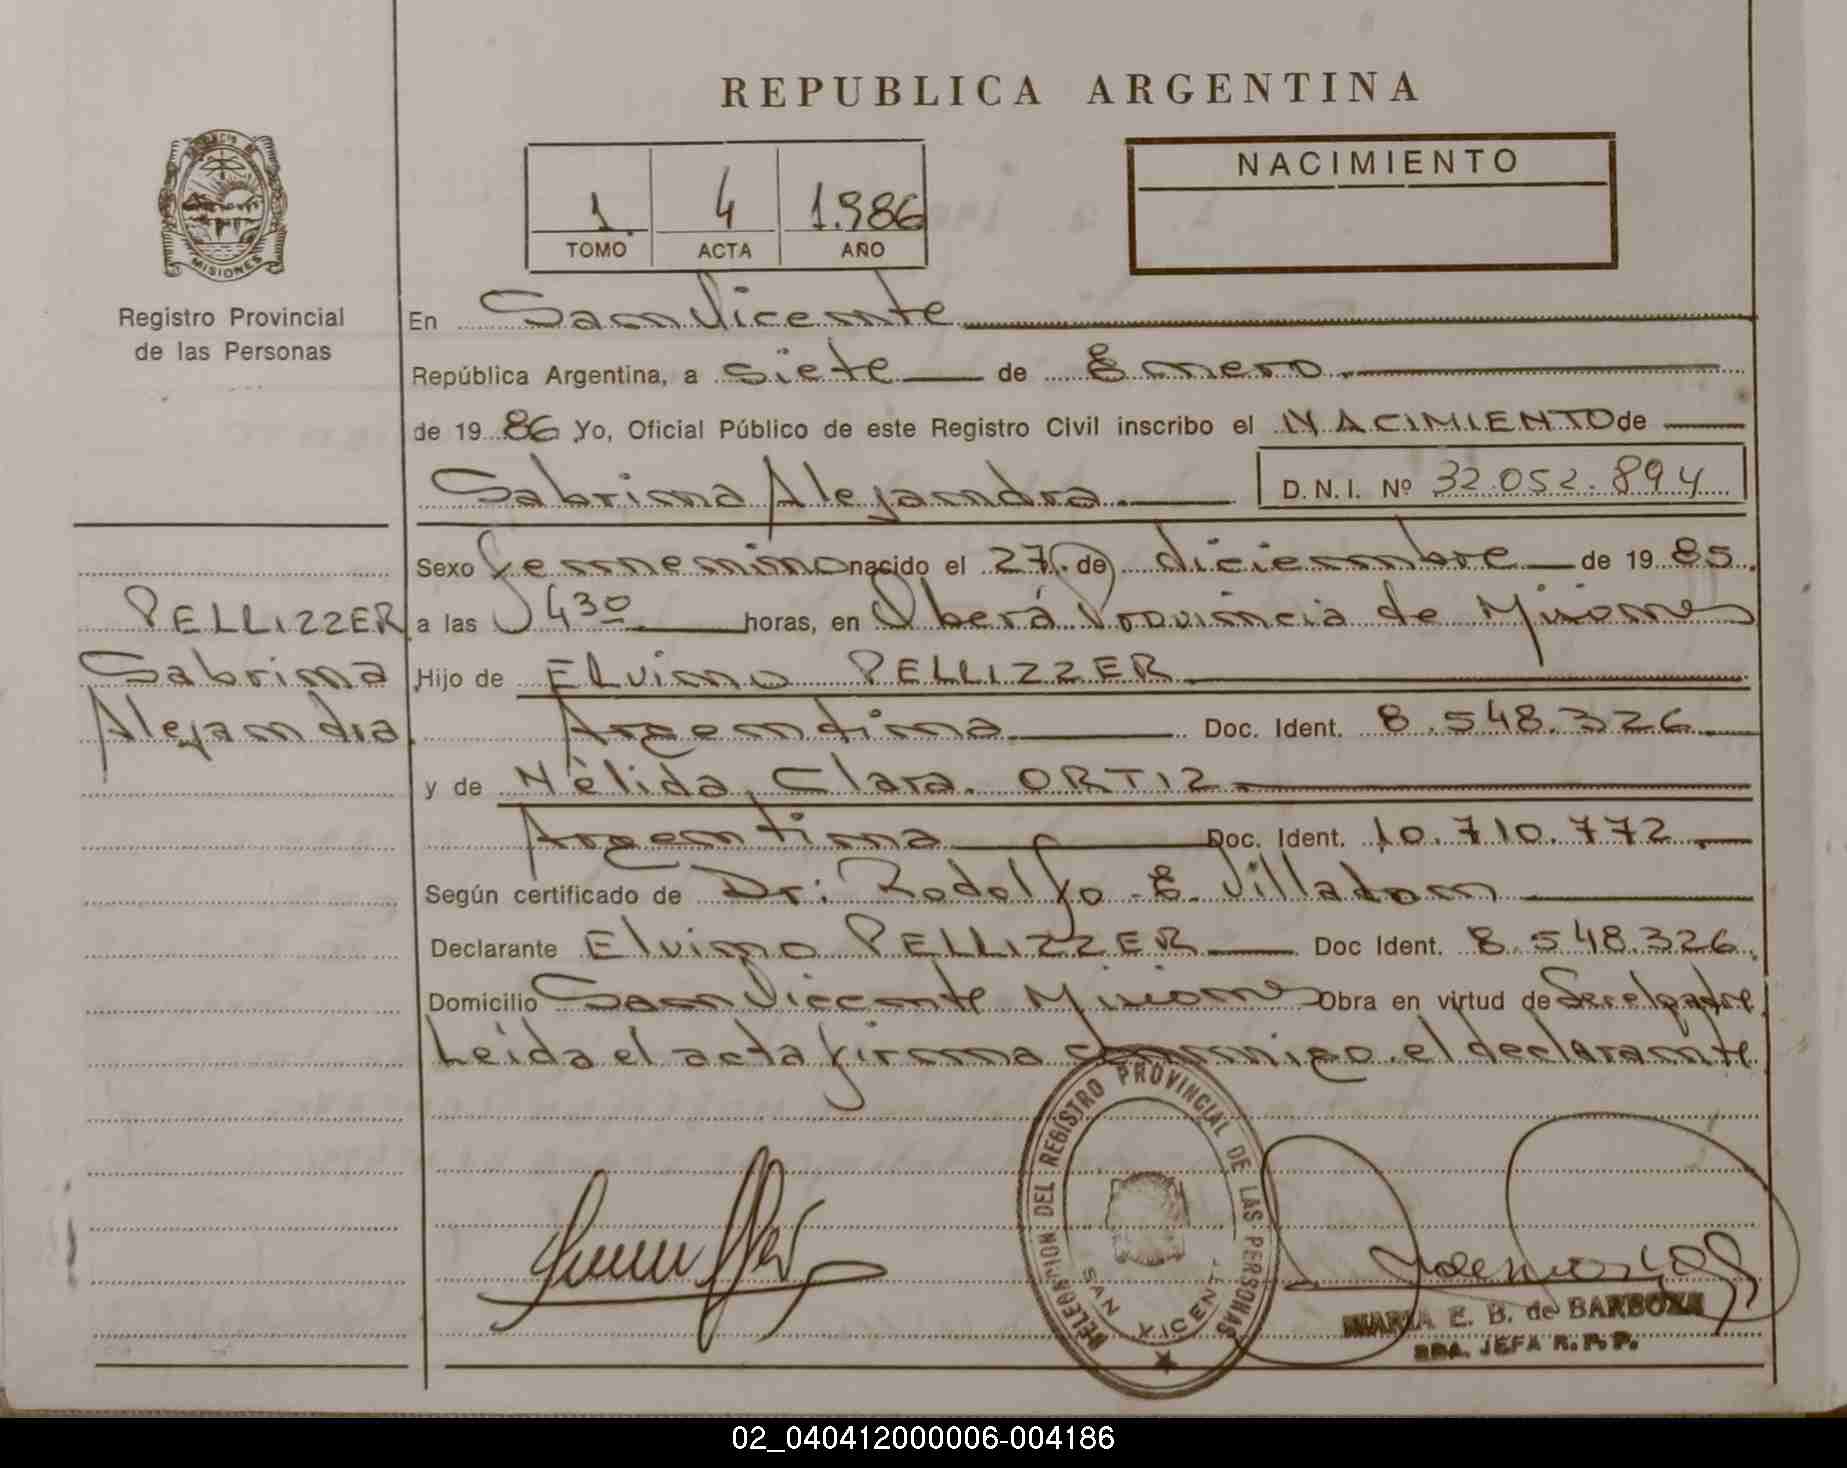 REPUBLICA ARGENTINA
MISIONES
Registro Provincial
de las Personas
1 4 1.986
TOMO ACTA AÑO
NACIMIENTO
En San Vicente
República Argentina, a siete de Enero
de 1986 Yo, Oficial Público de este Registro Civil inscribo el NACIMIENTO de
Sabrina Alejandra. D.N.I. Nº 32.052.894
Sexo femenino nacido el 27 de diciembre de 1985.
PELLIZZER
Sabrina
Alejandra.
a las 430 horas, en Oberá Provincia de Misiones
Hijo de ELvino PELLIZZER
Argentina Doc. Ident. 8.548.326
y de Nélida, Clara. ORTIZ
Argentina Doc. Ident. 10.710.772
Según certificado de Dr: Rodolfo E. Villadom
Declarante Elvino PELLIZZER Doc Ident. 8.548.326.
Domicilio San Vicente Misiones Obra en virtud de Ser el padre
Leída el acta firma conmigo el declarante
DELEGACION DEL REGISTRO PROVINCIAL DE LAS PERSONAS
SAN VICENTE
MARIA E. B. de BARBOZA
JEFA R.P.P.
02_040412000006-004186